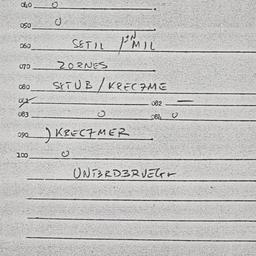 040 0
050 0
060 SETIL / IN MIL
070 ZORNES
080 SKTUB / KREC7ME
081 082 —
083 0 084 0
090 ) KREC7MER
100 0
UNT3RD3RVEG